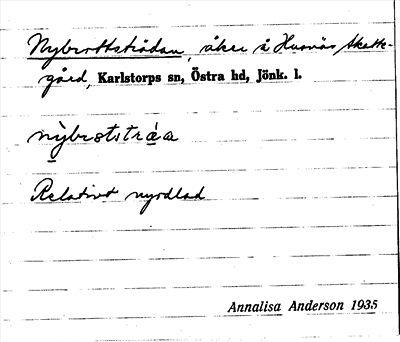 Nybrottsträdan, åker å Husnäs skatte-
gård, Karlstorps sn, Östra hd, Jönk. l.
Relativt nyodlad
Annalisa Anderson 1935